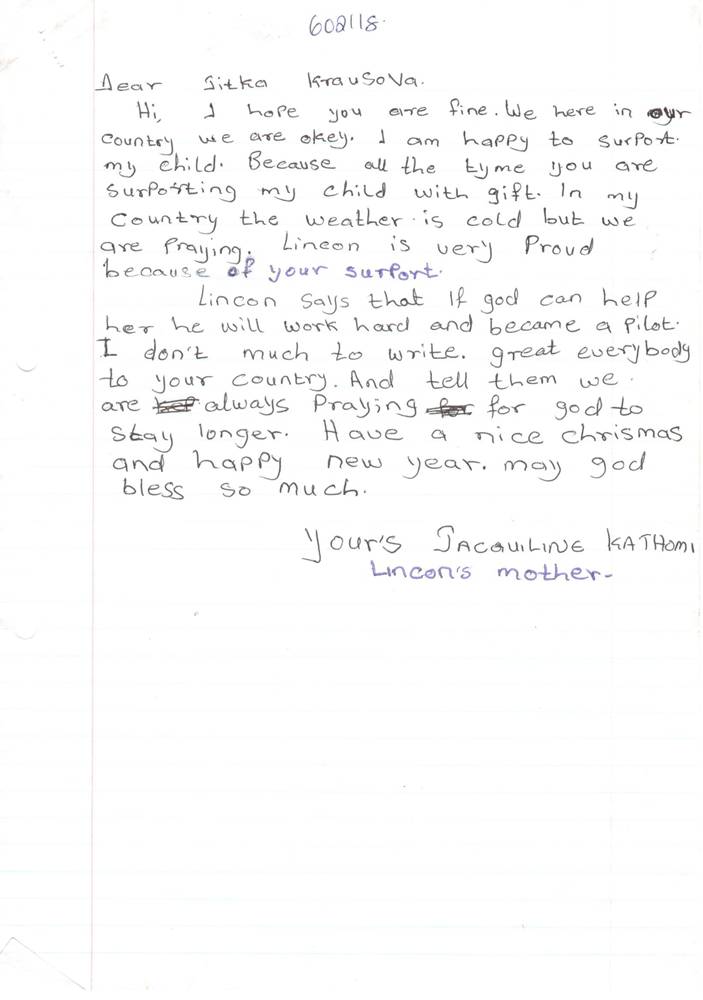 602118.
Dear Jitka Krausova.
Hi, I hope you are fine. We here in our
country we are okey. I am happy to surport.
my child. Because all the tyme you are
surporting my child with gift. In my
country the weather is cold but we
are praying. Lincon is very Proud
because of your surport.
Lincon says that If god can help
her he will work hard and became a Pilot.
I don't much to write. great everybody
to your country. And tell them we.
are always Praying for god to
stay longer. Have a nice chrismas
and happy new year. may god
bless so much.
Your's JACQUILINE KATHOMI
Lincon's mother-